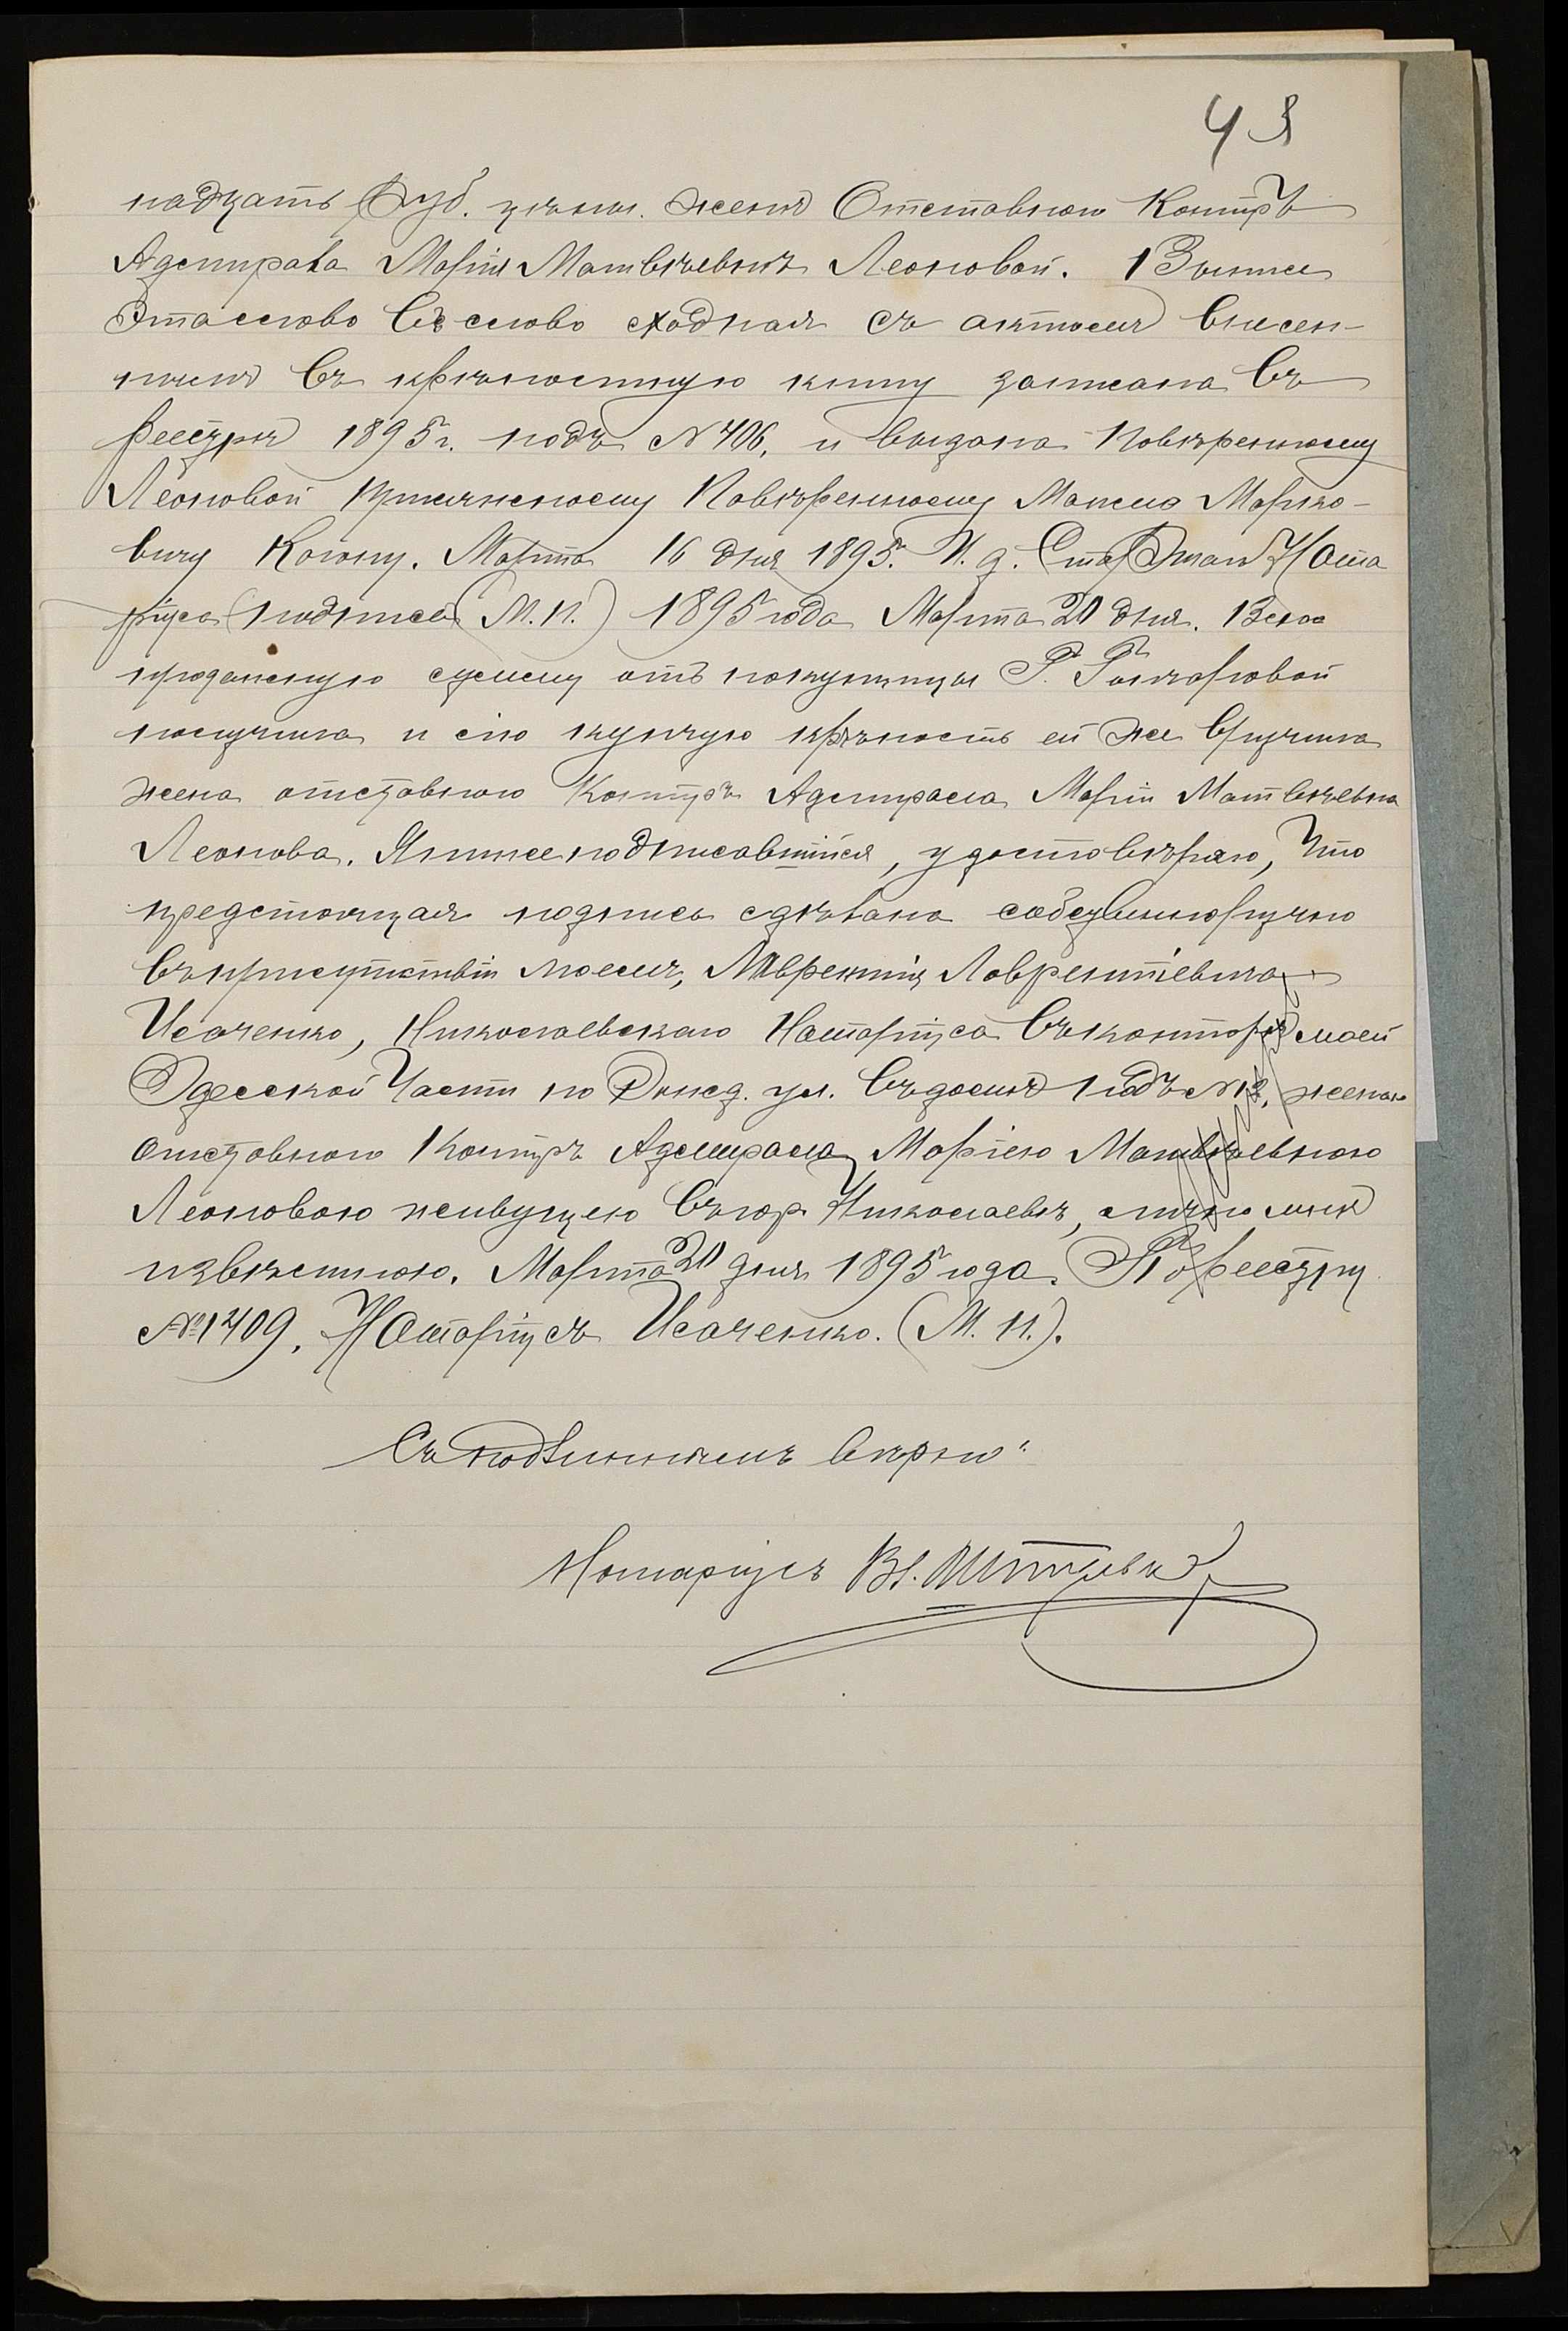 43
надцать Руб. учинен. женѣ Отставного Контръ
Адмирала Маріи Матвѣевнѣ Леоновой. Выпись
эта слово въ слово сходная съ актомъ внесен-
нымъ въ крѣпостную книгу записана въ
реестрѣ 1895 г. подъ № 406, и выдана Повѣренному
Леоновой Присяжному Повѣренному Марко-
вичу Когону. Марта 16 дня 1895. И. д. Старшаго Нота
ріуса (подпись) (М. П.) 1895 года Марта 20 дня. Всю
продажную сумму отъ покупщицы Г. Гончаровой
получила и сію купчую крѣпость ей же вручила
жена отставного Контръ Адмирала Марія Матвѣевна
Леонова. Я нижеподписавшійся, удостовѣряю, что
предстоящая подпись сдѣлана собственноручно
въ присутствіи моемъ, Лаврентія Лаврентіевича
Исаченко, Николаевскаго Нотаріуса въ конторѣ моей
Одесской Части по ул. въ домѣ подъ № женою
отставного Контръ Адмирала Маріею Матвѣевною
Леоновою живущею въ гор. Николаевѣ, лично мнѣ
извѣстною. Марта 20 дня 1895 года. По реестру
№ 1409. Нотаріусъ Исаченко. (М. П.).
Съ подлиннымъ вѣрно:
Нотаріусъ Вл.